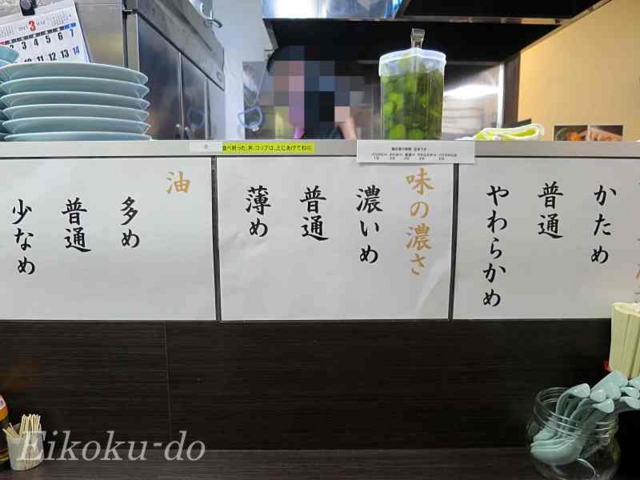 かため
普通
やわらかめ
味の濃さ
濃いめ
普通
薄め
油
多め
普通
少なめ
3
Eikoku-do